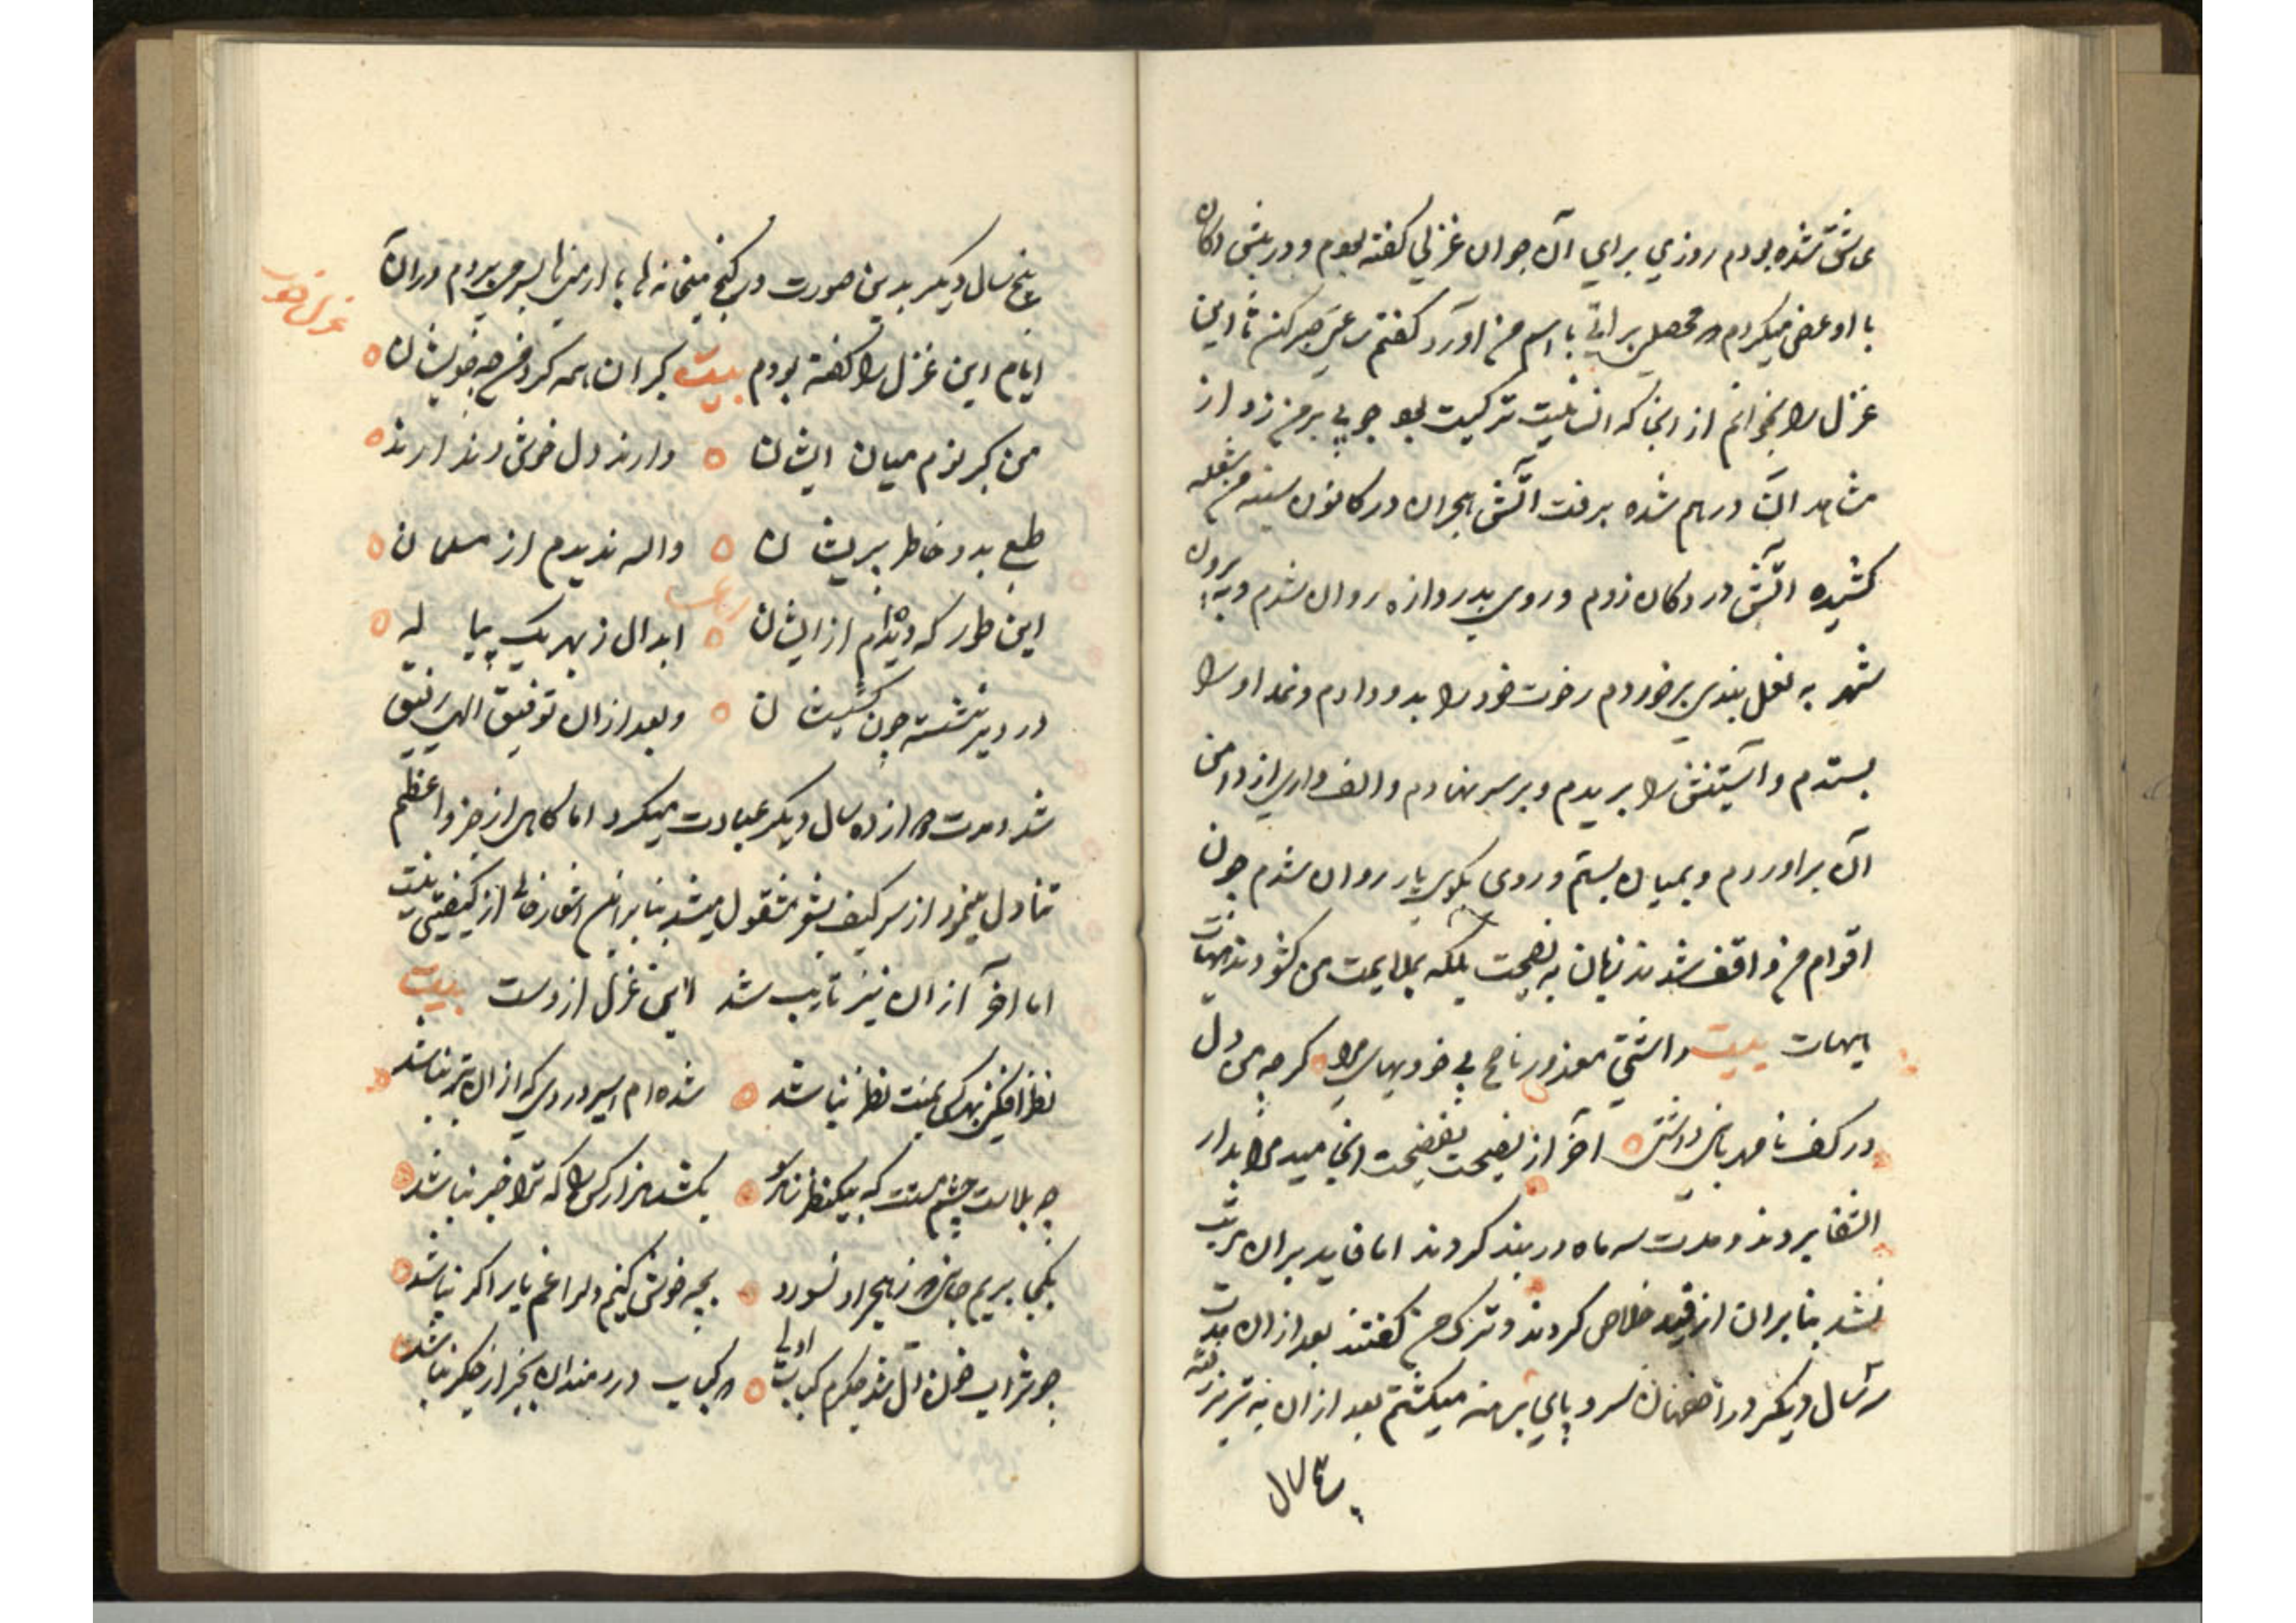 عاشق شده بودم روزي براي آن جوان غزلي گفته بودم و در پیش دکان
با او عرض میکردم که محصلی براتی باسم من آورد گفتم ساعتی صبر کن تا این
غزل را بخوانم از آنجا که انسانیت ترکیت بود چوبی بر من زد از
مشاهده آن درهم شده برفت آتش هجران در کانون سینه من شعله
کشیده آتش در دکان زدم و روی بدروازه روان شدم و به بیرون
شهر به نعل بندی برخوردم رخوت خود را بدو دادم و نمد او را
بستدم و آستینش را بریدم و بر سر نهادم و الف واری از دامن
آن برآوردم و بمیان بستم و روی بکوی یار روان شدم چون
اقوام من واقف شدند زبان به نصیحت بلکه بملامت من گشودند هیهات
هیهات بیت داشتی معذور ناصح بی خودیهای مرا گر چه من دل
در کف نامهربانی داشتی آخر از نصیحت بفضیحت انجامید مرا بدار
الشفا بردند و مدت سه ماه در بند کردند اما فایده بران مرتب
نشد بنابران از قید خلاص کردند و ترک من گفتند بعد از ان مدت
سه سال دیگر در اصفهان سر و پای برهنه میگشتم بعد از ان به تبریز رفته
پنج سال
پنج سال دیگر بدین صورت در کنج میخانه ها با ارمنی ها بسر می بردم در آن
غزل خوب
ایام این غزل را گفته بودم بیت گبران همه گرد من چو خویشان
من گبر نوم میان ایشان دارند دل خوش و ندارند
طبع بد و خاطر پریشان والله ندیدم از مسلمان
این طور که دیده‌ام از ایشان ابدال ز بهر یک پیاله
در دیر نشسته چون کشیشان و بعد از ان توفیق الهی رفیق
شد و مدت ده سال دیگر عبادت میکرد اما گاهی از جزو اعظم
تناول مینمود از سر کیف بشعر مشغول میشد بنابراین اشعارش خالی از کیفیتی نیست
اما آخر از ان نیز تایب شد این غزل ازوست بیت
نظر افکنی بهر کس بمنت نظر نباشد شده ام اسیر دردی که ازان بتر نباشد
چه بلاست چشم مستت که بیکنظر ز ناز بکشد هزار کس را که ترا خبر نباشد
بکجا بریم جانی که ز هجر او نسوزد بچه خوش کنیم دل را غم یار اگر نباشد
چو شراب خون دل شد جگرم کباب اولی که کباب دردمندان بجز از جگر نباشد